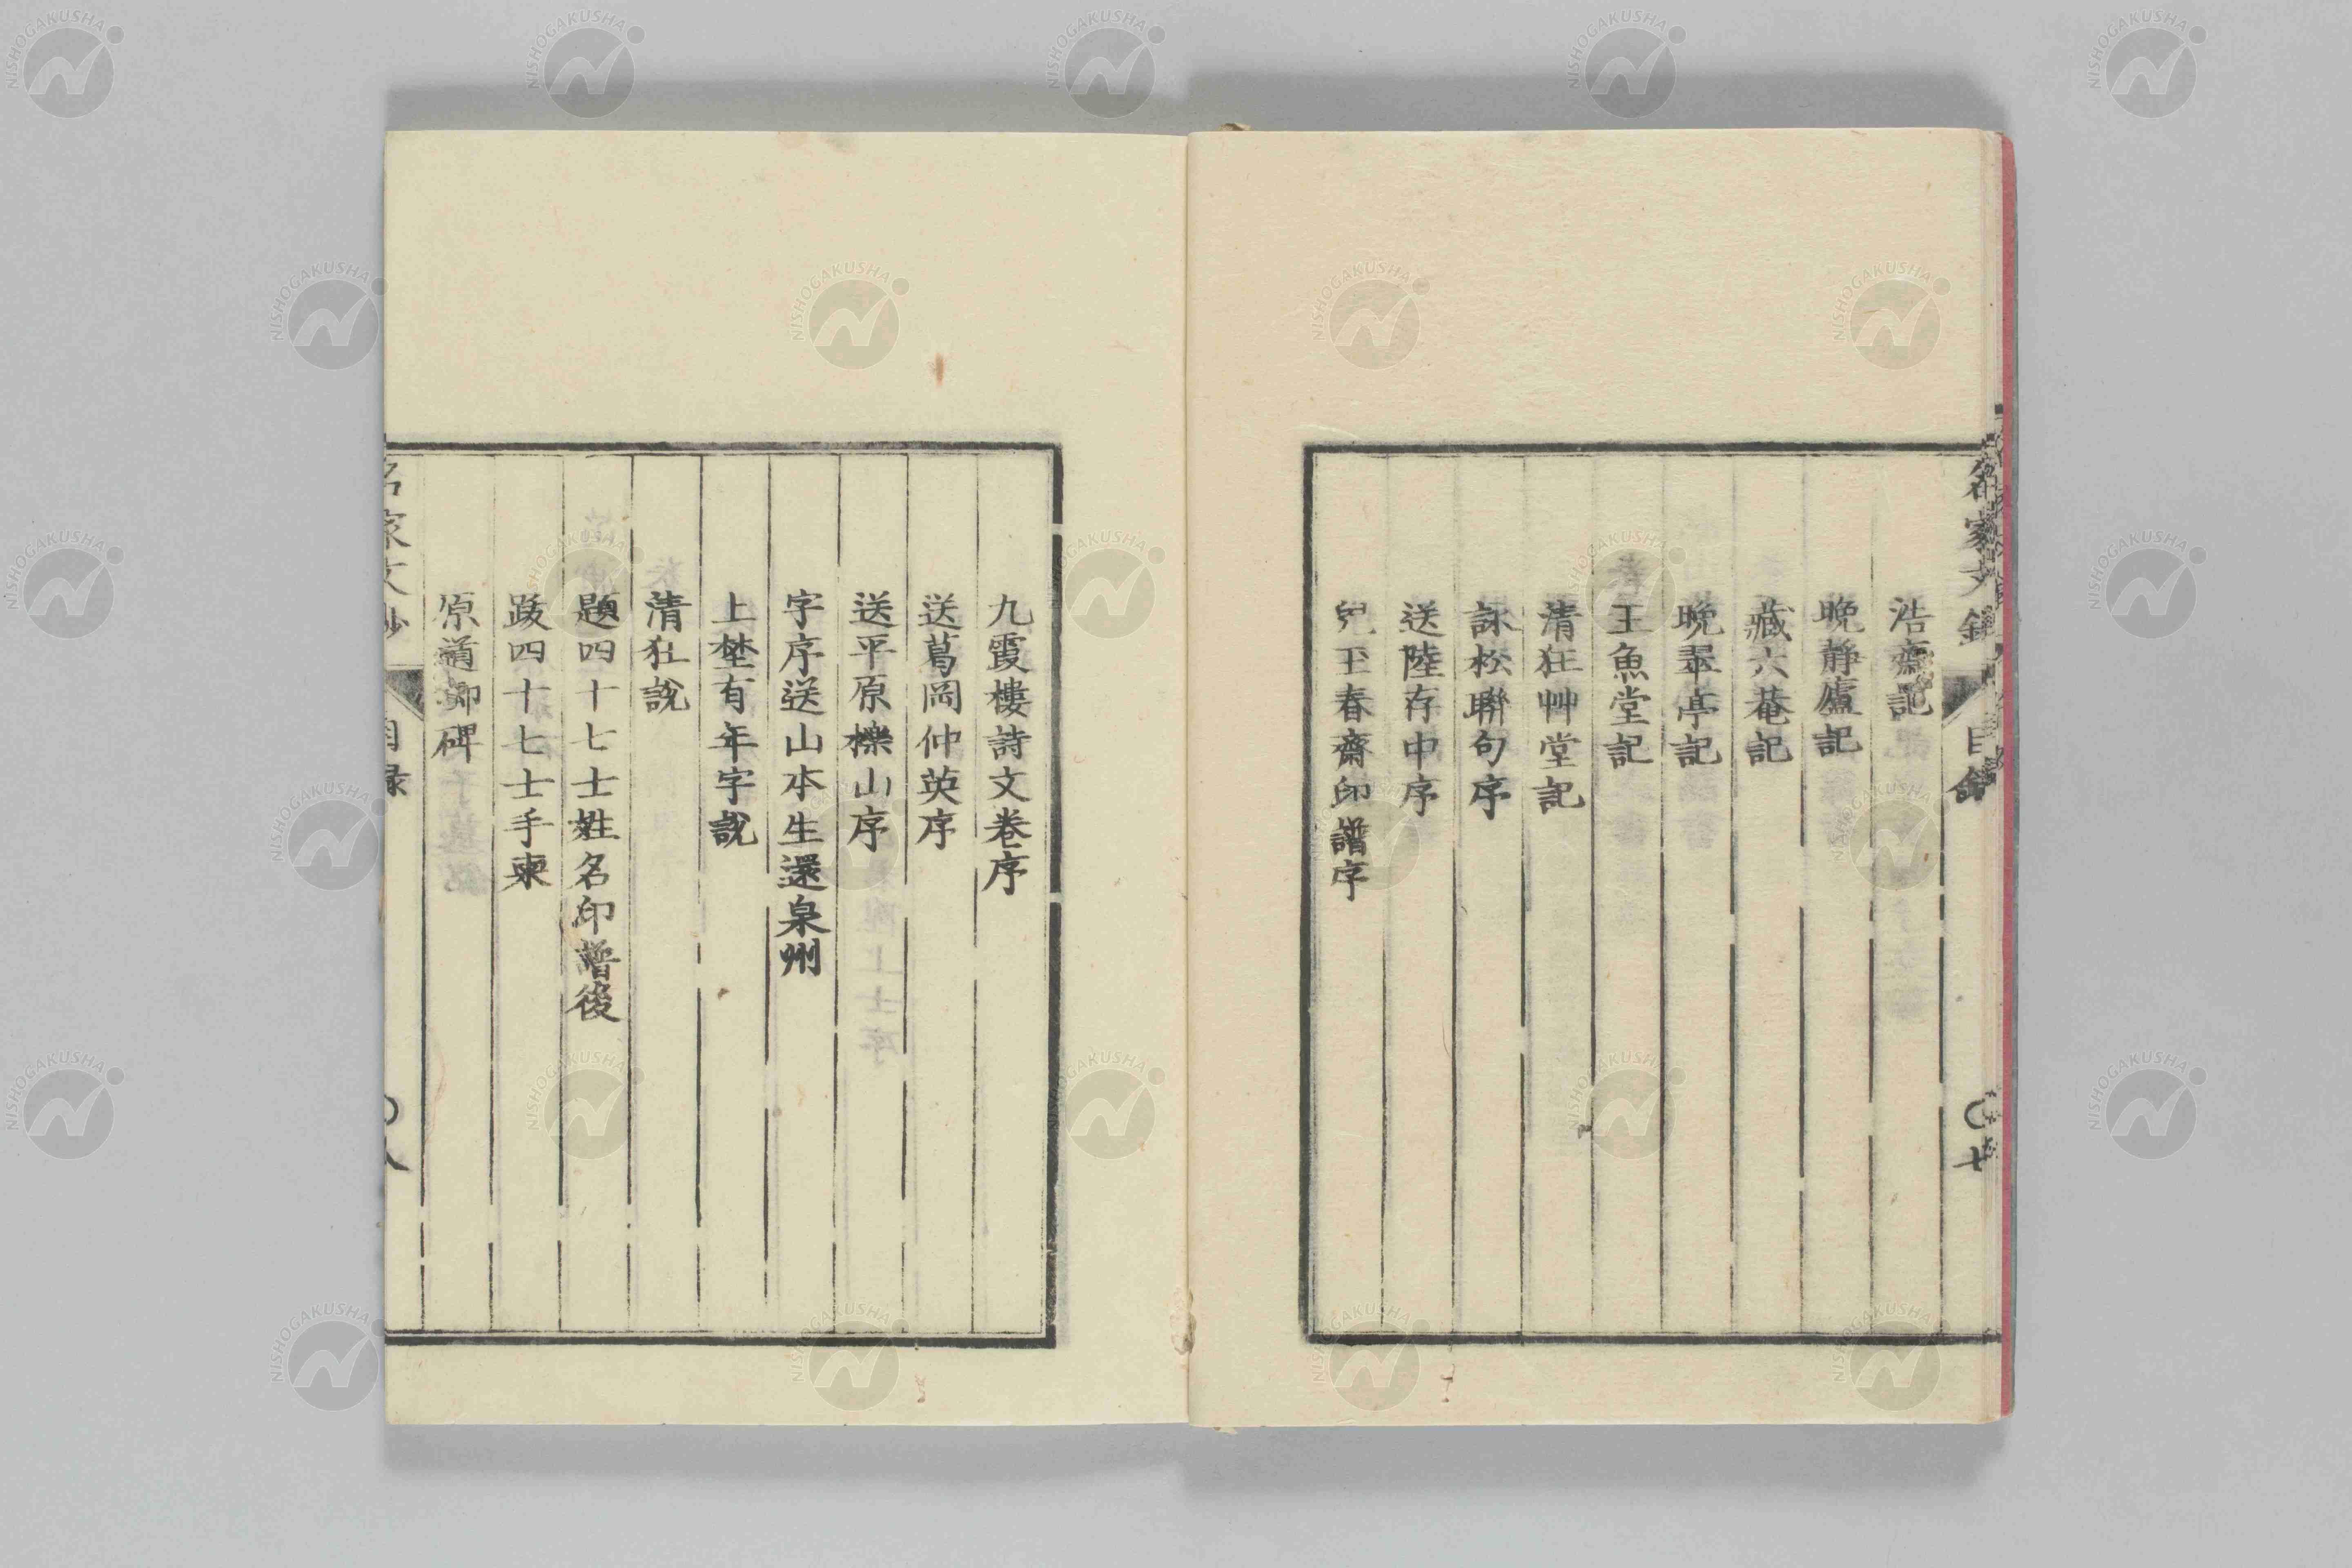 浩齋記
晩靜廬記
藏六菴記
晩翠亭記
王魚堂記
清狂艸堂記
詠松聯句序
送陸存中序
兒玉春齋印譜序
九霞樓詩文卷序
送葛岡仲英序
送平原櫟山序
字序送山本生還泉州
上埜有年字說
清狂說
題四十七士姓名印譜後
跋四十七士手柬
原道卿碑
名家文鈔
目録
八
NISHOGAKUSHA